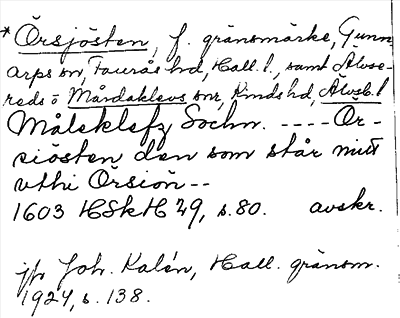 * Örsjösten, f. gränsmärke, Gunn-
arps sn, Faurås hd, Hall. l., samt Älvse-
reds o Mårdaklevs snr, Kinds hd, Älvsb. l
Måleklefz Sochn. ---- Ör-
siösten den som står mitt
vthi Örsiön --
1603 HSkH 29, s. 80. avskr.
jfr Joh. Kalén, Hall. gränsm.
1924, s. 138.